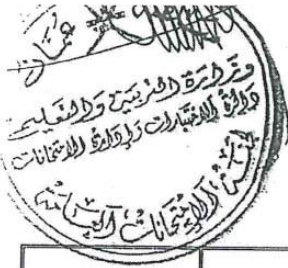 وزارة التربية والتعليم
دائرة الاختبارات وإدارة الامتحانات
الامتحانات العامة